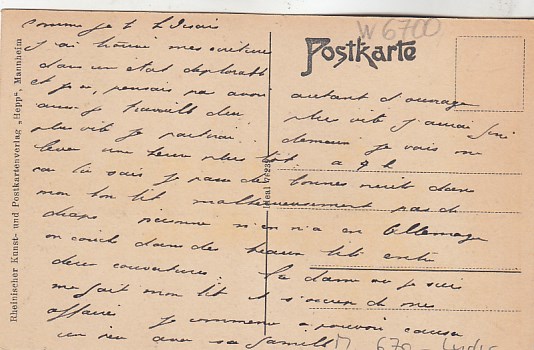 W 6700
Postkarte
Rheinischer Kunst- und Postkartenverlag „Hepp“, Mannheim
comme je t disais
j'ai trouvé mes
dans un état
et je pensais pas avoir
autant d'ouvrage
aussi je travaille
plus vite j'aurai fini
plus vite je partirai
demain je vais me
lever une heure plus tôt
a 9 h
le soir je passe de
bonnes nuits dans
mon bon lit malheureusement pas de
draps personne n'en a en Allemagne
on couche dans de beaux lits entre
deux couvertures. La dame où je suis
me fait mon lit et s'occupe de mes
affaires je commence à pouvoir causer
un peu avec sa famille